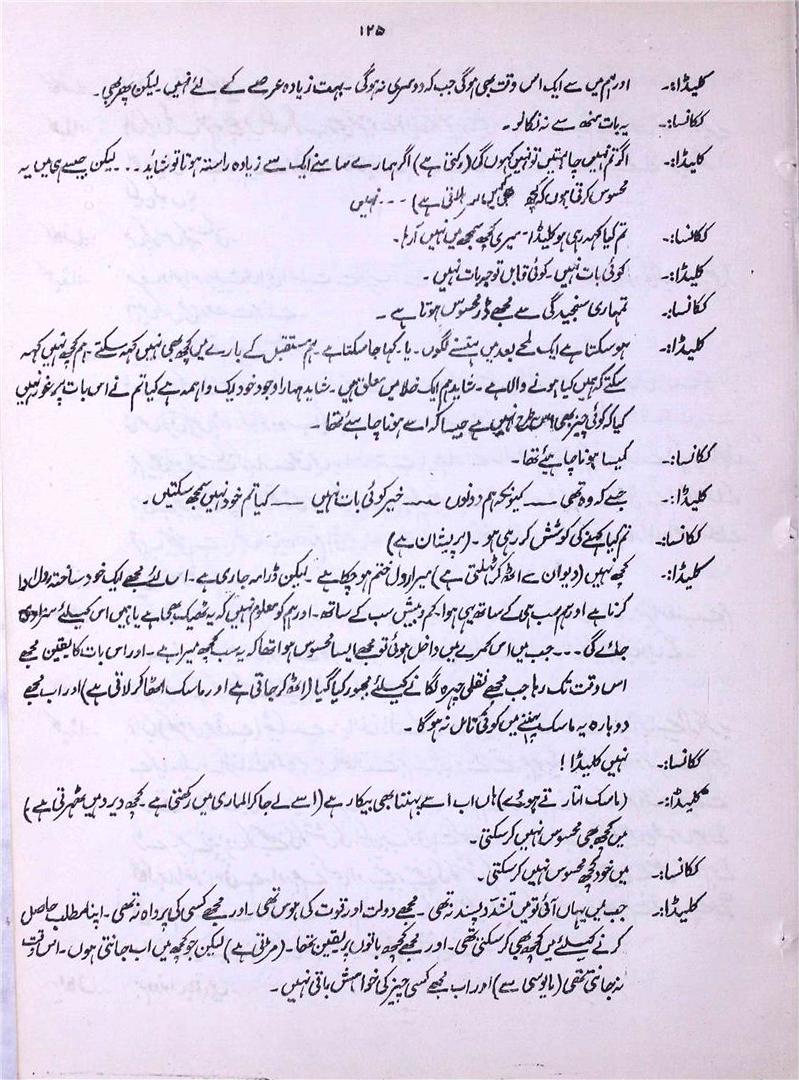 ۱۲۵
کلیڈا:۔ اور ہم میں سے ایک اس وقت بھی ہوگی جب کہ دوسری نہ ہوگی ۔ بہت زیادہ عرصے کے لئے نہیں ۔ لیکن پھر بھی ۔
ککانسا:۔ یہ بات منھ سے نہ نکالو ۔
کلیڈا:۔ اگر تم نہیں چاہتیں تو نہیں کہوں گی (رکتی ہے) اگر ہمارے سامنے ایک سے زیادہ راستہ ہوتا تو شاید ... لیکن جیسے ہی میں یہ
محسوس کرتی ہوں کہ کچھ بھی نہیں ہلاتی ہے) ۔۔۔ نہیں
ککانسا:۔ تم کیا کہہ رہی ہو کلیڈا ۔ میری کچھ سمجھ میں نہیں آرہا۔
کلیڈا:۔ کوئی بات نہیں ۔ کوئی قابل توجہ بات نہیں ۔
ککانسا:۔ تمہاری سنجیدگی سے مجھے ڈر محسوس ہوتا ہے ۔
کلیڈا:۔ ہو سکتا ہے ایک لمحے بعد میں ہنسنے لگوں ۔ یا ۔ کہا جا سکتا ہے ۔ ہم مستقبل کے بارے میں کچھ بھی نہیں کہہ سکتے ۔ ہم کچھ نہیں کہہ
سکتے کہ ہمیں کیا ہونے والا ہے ۔ شاید ہم ایک خلا میں معلق ہیں ۔ شاید ہمارا وجود خود ایک واہمہ ہے کیا تم نے اس بات پر غور نہیں
کیا کہ کوئی چیز بھی اس طرح نہیں ہے جیسا کہ اسے ہونا چاہئے تھا ۔
ککانسا:۔ کیسا ہونا چاہئے تھا ۔
کلیڈا:۔ جیسے کہ وہ تھی ــــ کیونکہ ہم دونوں ــــ خیر کوئی بات نہیں ــــ کیا تم خود نہیں سمجھ سکتیں ۔
ککانسا:۔ تم کیا کہنے کی کوشش کر رہی ہو ۔ (پریشان ہے)
کلیڈا:۔ کچھ نہیں (دیوان سے اٹھ کر ٹہلتی ہے) میرا رول ختم ہو چکا ہے ۔ لیکن ڈرامہ جاری ہے ۔ اس لئے مجھے ایک خود ساختہ رول ادا
کرنا ہے اور ہم سب ہی کے ساتھ یہی ہوا ۔ کم و بیش سب کے ساتھ ۔ اور ہم کو معلوم نہیں کہ یہ ٹھیک بھی ہے یا ہمیں اس کیلئے سزا دی
جائے گی ۔۔۔ جب میں اس کمرے میں داخل ہوئی تو مجھے ایسا محسوس ہوا تھا کہ یہ سب کچھ میرا ہے ۔ اور اس بات کا یقین مجھے
اس وقت تک رہا جب مجھے نقلی چہرہ لگانے کیلئے مجبور کیا گیا (اٹھ کر جاتی ہے اور ماسک اٹھا کر لاتی ہے) اور اب مجھے
دوبارہ یہ ماسک پہننے میں کوئی تامل نہ ہوگا ۔
ککانسا:۔ نہیں کلیڈا !
کلیڈا:۔ (ماسک اتارتے ہوئے) ہاں اب اسے پہننا بھی بیکار ہے (اسے لے جا کر الماری میں رکھتی ہے ۔ کچھ دیر وہیں ٹھہرتی ہے)
میں کچھ بھی محسوس نہیں کر سکتی ۔
ککانسا:۔ میں خود کچھ محسوس نہیں کر سکتی ۔
کلیڈا:۔ جب میں یہاں آئی تو میں تشدد پسند نہ تھی ۔ مجھے دولت اور قوت کی ہوس تھی ۔ اور مجھے کسی کی پرواہ نہ تھی ۔ اپنا مطلب حاصل
کرنے کیلئے میں کچھ بھی کر سکتی تھی ۔ اور مجھے کچھ باتوں پر یقین تھا ۔ (مڑتی ہے) لیکن جو کچھ میں اب جانتی ہوں ۔ اس وقت
نہ جانتی تھی (مایوسی سے) اور اب مجھے کسی چیز کی خواہش باقی نہیں ۔